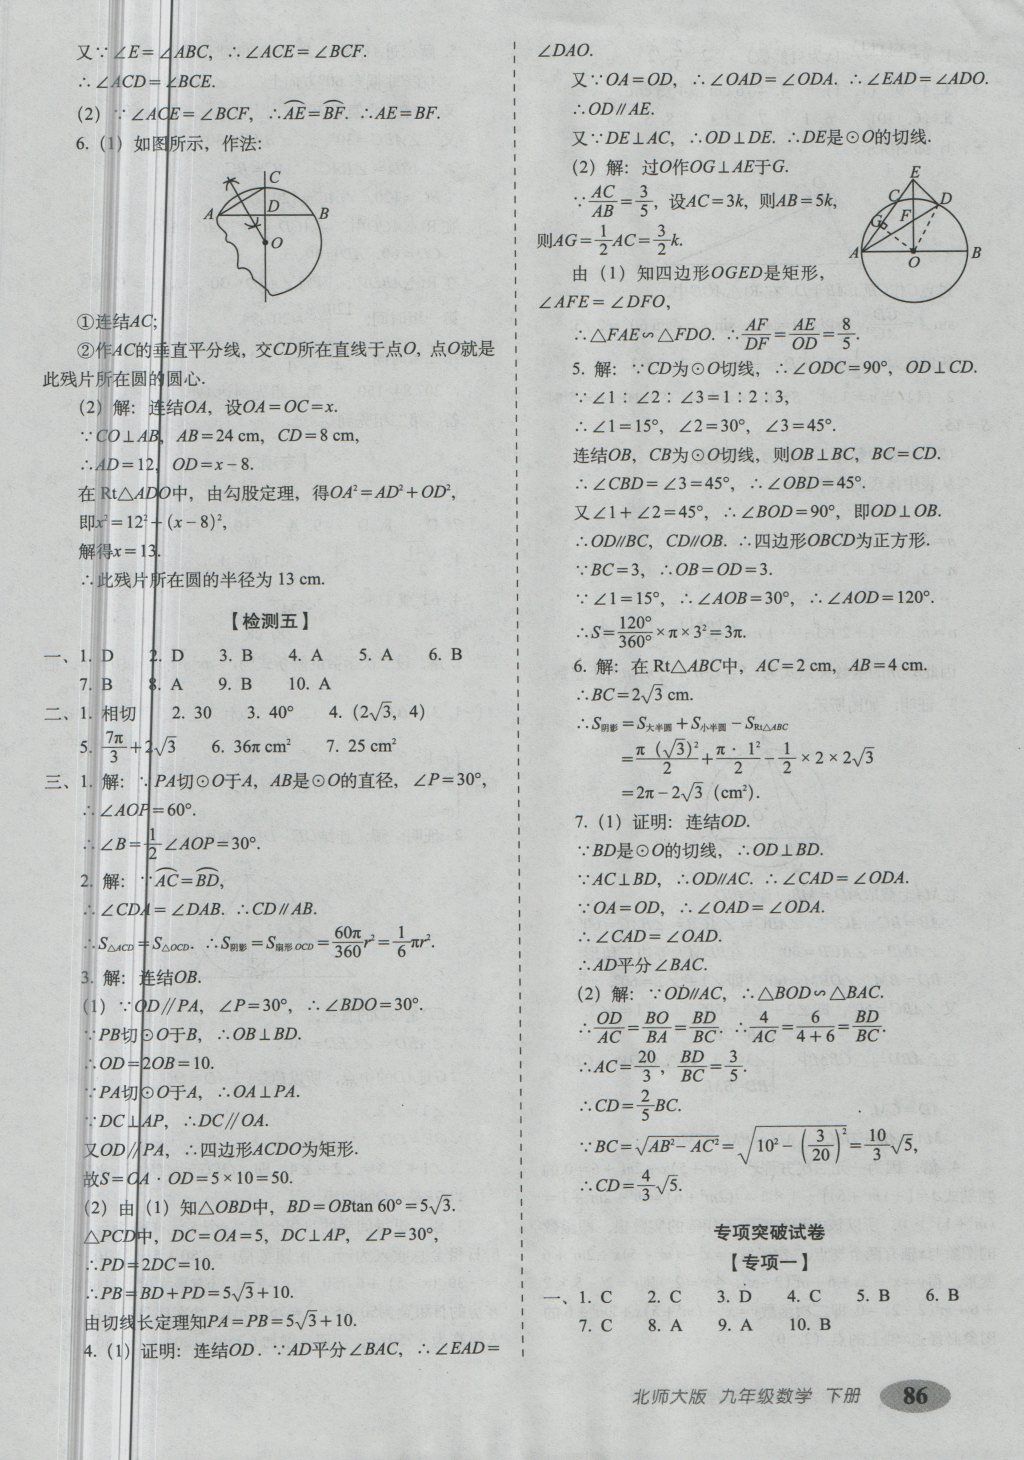 又∵∠E=∠ABC, ∴∠ACE=∠BCF.
∴∠ACD=∠BCE.
(2) ∵∠ACE=∠BCF, ∴⌒AE=⌒BF. ∴AE=BF.
6. (1) 如图所示, 作法:
C
A D B
O
①连结AC;
②作AC的垂直平分线, 交CD所在直线于点O, 点O就是
此残片所在圆的圆心.
(2) 解: 连结OA, 设OA=OC=x.
∵CO⊥AB, AB=24 cm, CD=8 cm,
∴AD=12, OD=x-8.
在 Rt△ADO中, 由勾股定理, 得OA²=AD²+OD²,
即x²=12²+(x-8)²,
解得x=13.
∴此残片所在圆的半径为 13 cm.
【检测五】
一、1. D 2. D 3. B 4. A 5. A 6. B
7. B 8. A 9. B 10. A
二、1. 相切 2. 30 3. 40° 4. (2√3, 4)
5. 7π/3+2√3 6. 36π cm² 7. 25 cm²
三、1. 解: ∵PA切⊙O于A, AB是⊙O的直径, ∠P=30°,
∴∠AOP=60°.
∴∠B=1/2∠AOP=30°.
2. 解: ∵⌒AC=⌒BD,
∴∠CDA=∠DAB. ∴CD∥AB.
∴S△ACD=S△OCD. ∴S阴影=S扇形OCD=60π/360 r²=1/6πr².
3. 解: 连结OB.
(1) ∵OD∥PA, ∠P=30°, ∴∠BDO=30°.
∵PB切⊙O于B, ∴OB⊥BD.
∴OD=2OB=10.
∵PA切⊙O于A, ∴OA⊥PA.
∵DC⊥AP, ∴DC∥OA.
又OD∥PA, ∴四边形ACDO为矩形.
故S=OA·OD=5×10=50.
(2) 由 (1) 知△OBD中, BD=OBtan 60°=5√3.
△PCD中, DC=OA=5, DC⊥AP, ∠P=30°,
∴PD=2DC=10.
∴PB=BD+PD=5√3+10.
由切线长定理知PA=PB=5√3+10.
4. (1) 证明: 连结OD. ∵AD平分∠BAC, ∴∠EAD=
∠DAO.
又∵OA=OD, ∴∠OAD=∠ODA. ∴∠EAD=∠ADO.
∴OD∥AE.
又∵DE⊥AC, ∴OD⊥DE. ∴DE是⊙O的切线.
(2) 解: 过O作OG⊥AE于G.
∵AC/AB=3/5, 设AC=3k, 则AB=5k,
则AG=1/2AC=3/2k.
由 (1) 知四边形OGED是矩形,
∠AFE=∠DFO,
E
C D
G F
A O B
∴△FAE∽△FDO. ∴AF/DF=AE/OD=8/5.
5. 解: ∵CD为⊙O切线, ∴∠ODC=90°, OD⊥CD.
∵∠1∶∠2∶∠3=1∶2∶3,
∴∠1=15°, ∠2=30°, ∠3=45°.
连结OB, CB为⊙O切线, 则OB⊥BC, BC=CD.
∴∠CBD=∠3=45°, ∴∠OBD=45°.
又∠1+∠2=45°, ∴∠BOD=90°, 即OD⊥OB.
∴OD∥BC, CD∥OB. ∴四边形OBCD为正方形.
∵BC=3, ∴OB=OD=3.
∵∠1=15°, ∴∠AOB=30°, ∴∠AOD=120°.
∴S=120°/360°×π×3²=3π.
6. 解: 在 Rt△ABC中, AC=2 cm, AB=4 cm.
∴BC=2√3 cm.
∴S阴影=S大半圆+S小半圆-SRt△ABC
=π(√3)²/2+π·1²/2-1/2×2×2√3
=2π-2√3 (cm²).
7. (1) 证明: 连结OD.
∵BD是⊙O的切线, ∴OD⊥BD.
∵AC⊥BD, ∴OD∥AC. ∴∠CAD=∠ODA.
∵OA=OD, ∴∠OAD=∠ODA.
∴∠CAD=∠OAD.
∴AD平分∠BAC.
(2) 解: ∵OD∥AC, ∴△BOD∽△BAC.
∴OD/AC=BO/BA=BD/BC. ∴4/AC=6/4+6=BD/BC.
∴AC=20/3, BD/BC=3/5.
∴CD=2/5BC.
∵BC=√AB²-AC²=√10²-(3/20)²=10/3√5,
∴CD=4/3√5.
专项突破试卷
【专项一】
一、1. C 2. C 3. D 4. C 5. B 6. B
7. C 8. A 9. A 10. B
北师大版 九年级数学 下册 86